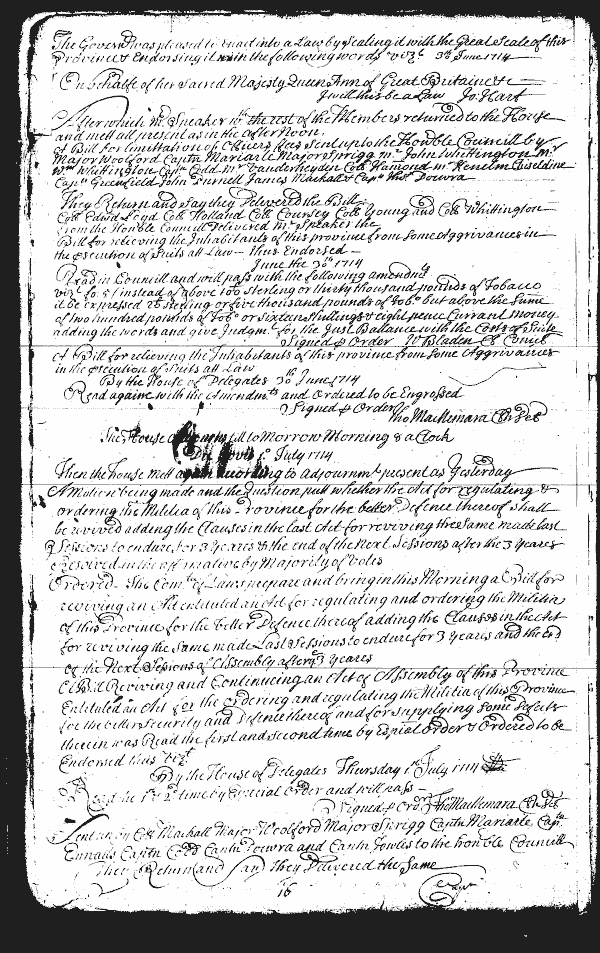 The Govern.r was pleased to Enact into a Law by Sealing it with the Great Seale of this
Province & Endorsing it with the following words viz.t 30th June 1714
On behalfe of her Sacred Majesty Queen Ann of Great Britaine &c
I will this be a Law Jo: Hart
After which Mr Speaker wth the rest of the Members returned to the House
and mett all present as in the afternoon.
A Bill for limittation of Officers fees sent up to the Honble Councill by
Major Woolford Captn Mariarte Major Sprigg mr John Whittington mr
Wm Whittington Capt Codd mr Vanderheyden Coll Hamond mr Kenelm Cheseldine
Capt Greenfield John Purnell James Mackall & Capt Thos Dowra
They Return and Say they Delivered the Bill
Coll Edwd Loyd Coll Holland Coll Coursey Coll Young and Coll Whittington
from the Honble Councill Delivered mr Speaker the
Bill for relieving the Inhabitants of this province from some Aggrivances in
the Execution of Suits att Law — thus Endorsed —
June the 30th 1714
Read in Councill and will pass with the following amendmts
vizt fo: 5t instead of above 100 Sterling or thirty thousand pounds of Tobacco
it be expressed 25 Sterling or five thousand pounds of Tobo but above the Same
of two hundred pounds of Tobo or Sixteen Shillings & eight pence Currant money
adding the words and give Judgmt for the Just Ballance with the Costs of Suite
Signed p Order W Bladen Cl Concil
A Bill for relieving the Inhabitants of this province from Some Aggrivances
in the Execution of Suits att Law
By the House of Delegates 30th June 1714
Read againe with the Amendmts and Ordered to be Engrossed
Signed p Order Tho Mackemara Cl
The House till to Morrow Morning 8 a Clock
July 1714
Then the house mett again according to adjournmt present as Yesterday
A Motion being made and the Question putt whether the Act for regulating &
ordering the Militia of this Province for the better Defence thereof shall
be revived adding the Clauses in the last Act for reviving the Same made last
Sessions to endure for 3 Yeares & the end of the Next Sessions after the 3 Yeares
Resolved in the affirmative by Majority of Votes
Ordered The Comtee of Laws prepare and bring in this Morning a Bill for
reviving an Act entituled an Act for regulating and ordering the Militia
of this Province for the better Defence thereof adding the Clauses in the Act
for reviving the Same made Last Sessions to endure for 3 Yeares and the End
of the Next Sessions of Assembly after 3 Yeares
A Bill Reviving and Continueing an Act of Assembly of this Province
Entituled an Act for the ordering and regulating the Militia of this Province
for the better Security and Defence thereof and for Supplying Some Defects
therein was Read the first and second time by Especial Order & Ordered to be
Endorsed thus vizt
By the House of Delegates Thursday 1st July 1714
Read the 1st & 2d time by Especial Order and will pass —
Signed p Ordr Tho Mackemara Cl
Sent up by Coll Mackall Major Woolford Major Sprigg Captn Mariarte Captn
Ennalls Captn Codd Captn Dowra and Captn Jowles to the honble Councill
They Return and Say they Delivered the Same
16